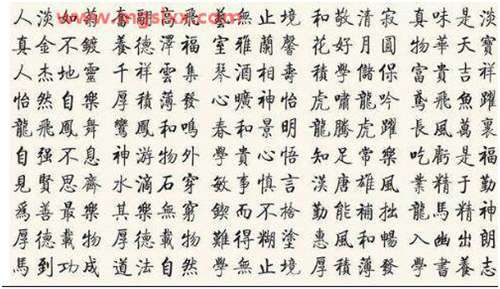 人淡如 高飛 無止境 和敬清寂 真味是淡
真金不鍍 養德澤福 室雅蘭馨 花好月圓 物華天寶
人杰地靈 千祥雲集 琴酒相壽 積學儲保 富貴吉祥
怡然自樂 厚積薄發 心曠神怡 虎嘯龍吟 鳶飛魚躍
龍飛鳳舞 鸞鳳和鳴 春和景明 龍騰虎躍 長風萬裏
自强不息 神游物外 學貴心悟 知足常樂 吃虧是福
見賢思齊 水滴石穿 敏事慎言 漢唐雄風 業精于勤
爲善最樂 其樂無窮 鍥而不捨 勤能補拙 龍馬精神
厚德載物 厚德載物 難得糊塗 惠風和暢 入幽出朗
馬到功成 道法自然 學無止境 厚積薄發 學書養志